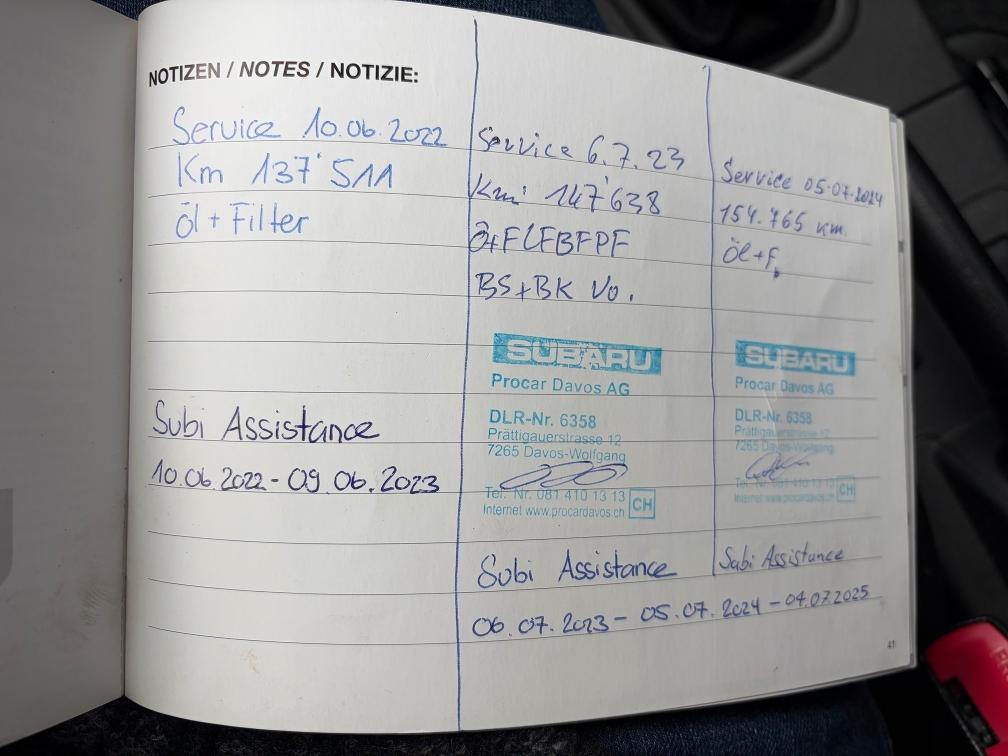 NOTIZEN / NOTES / NOTIZIE:
Service 10.06.2022
Km 137'511
Öl + Filter
Subi Assistance
10.06.2022 - 09.06.2023
Service 6.7.23
Km: 147'638
Ö+FLFBFPF
BS+BK Vo.
SUBARU
Procar Davos AG
DLR-Nr. 6358
Prättigauerstrasse 12
7265 Davos-Wolfgang
Tel. Nr. 081 410 13 13
Internet www.procardavos.ch CH
Subi Assistance
06.07.2023 - 05.07.2024 - 04.07.2025
Service 05.07.2024
154.765 km
Öl+F.
SUBARU
Procar Davos AG
DLR-Nr. 6358
Prättigauerstrasse 12
7265 Davos-Wolfgang
Tel. Nr. 081 410 13 13
Internet www.procardavos.ch CH
Subi Assistance
41